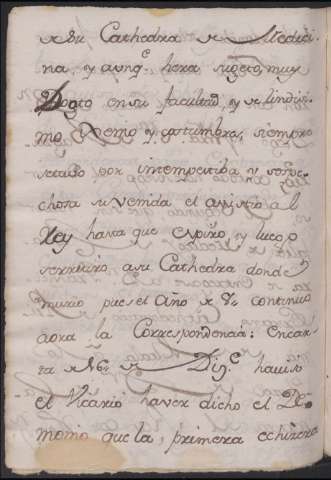 de su Cathedra de Medici
na, y aunq.e hera sugeto muy
Docto en su facultad, y de lindiss
mo Genio y costumbres, siempre
se tubo por intempestiba y sospe
chosa su venida el assistio al
Rey hasta que espiró y luego
se retiro, a su Cathedra donde
murio pues el Año de continuo
aora la Correspondencia: En car
ta de Nov.e de Dig.e havers
el Vicario haver dicho el De
monio que la, primera echizera